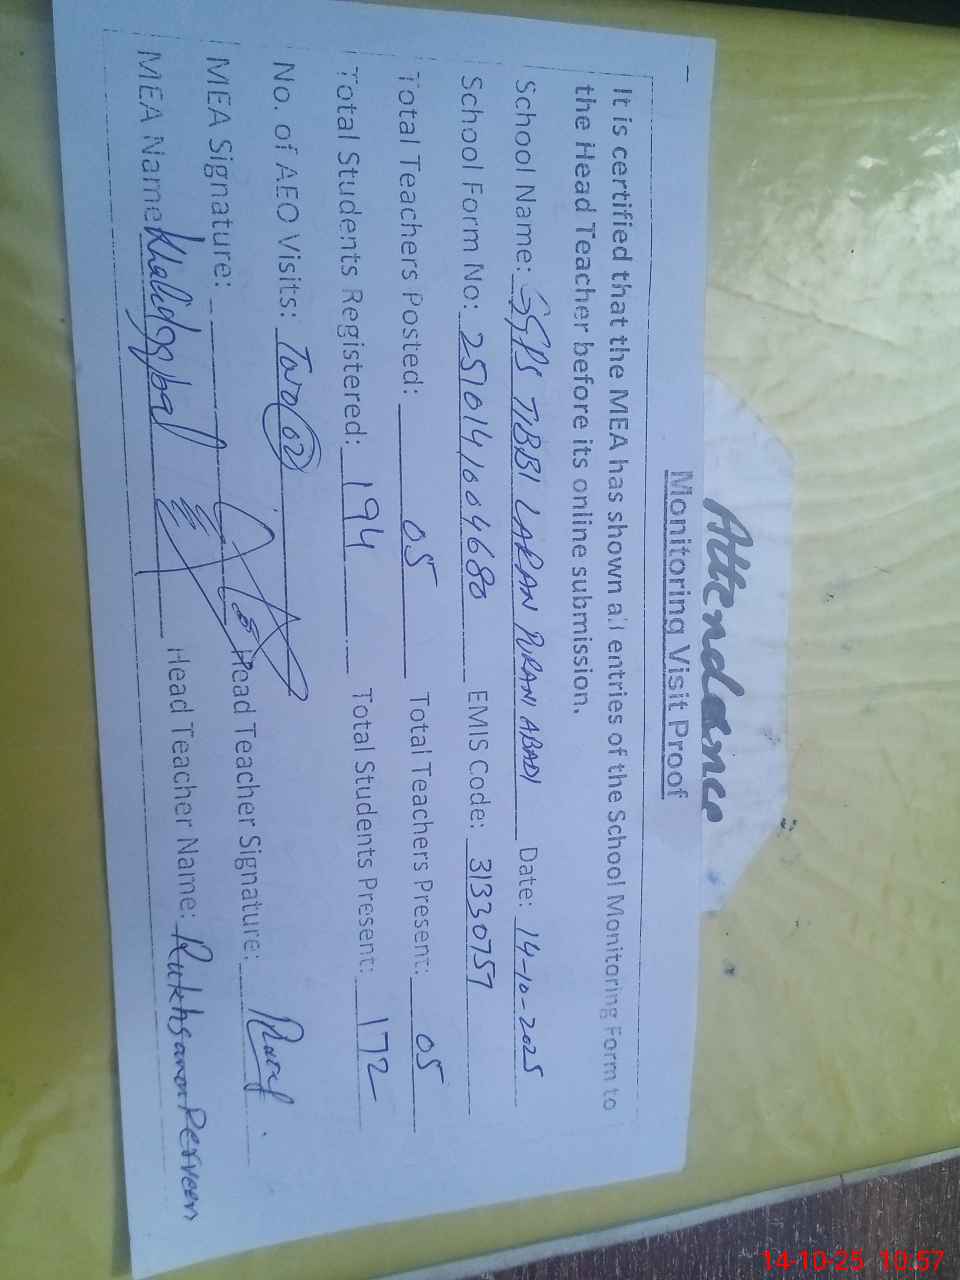 Attendance
Monitoring Visit Proof
It is certified that the MEA has shown all entries of the School Monitoring Form to
the Head Teacher before its online submission.
School Name: GGPS TIBBI LARAN PURANI ABADI Date: 14-10-2025
School Form No: 2510141004680 EMIS Code: 31330757
Total Teachers Posted: 05 Total Teachers Present: 05
Total Students Registered: 194 Total Students Present: 172
No. of AEO Visits: Two (02)
MEA Signature: Head Teacher Signature:
MEA Name: Khalid Iqbal Head Teacher Name: Rukhsana Perveen
14-10-25 10:57